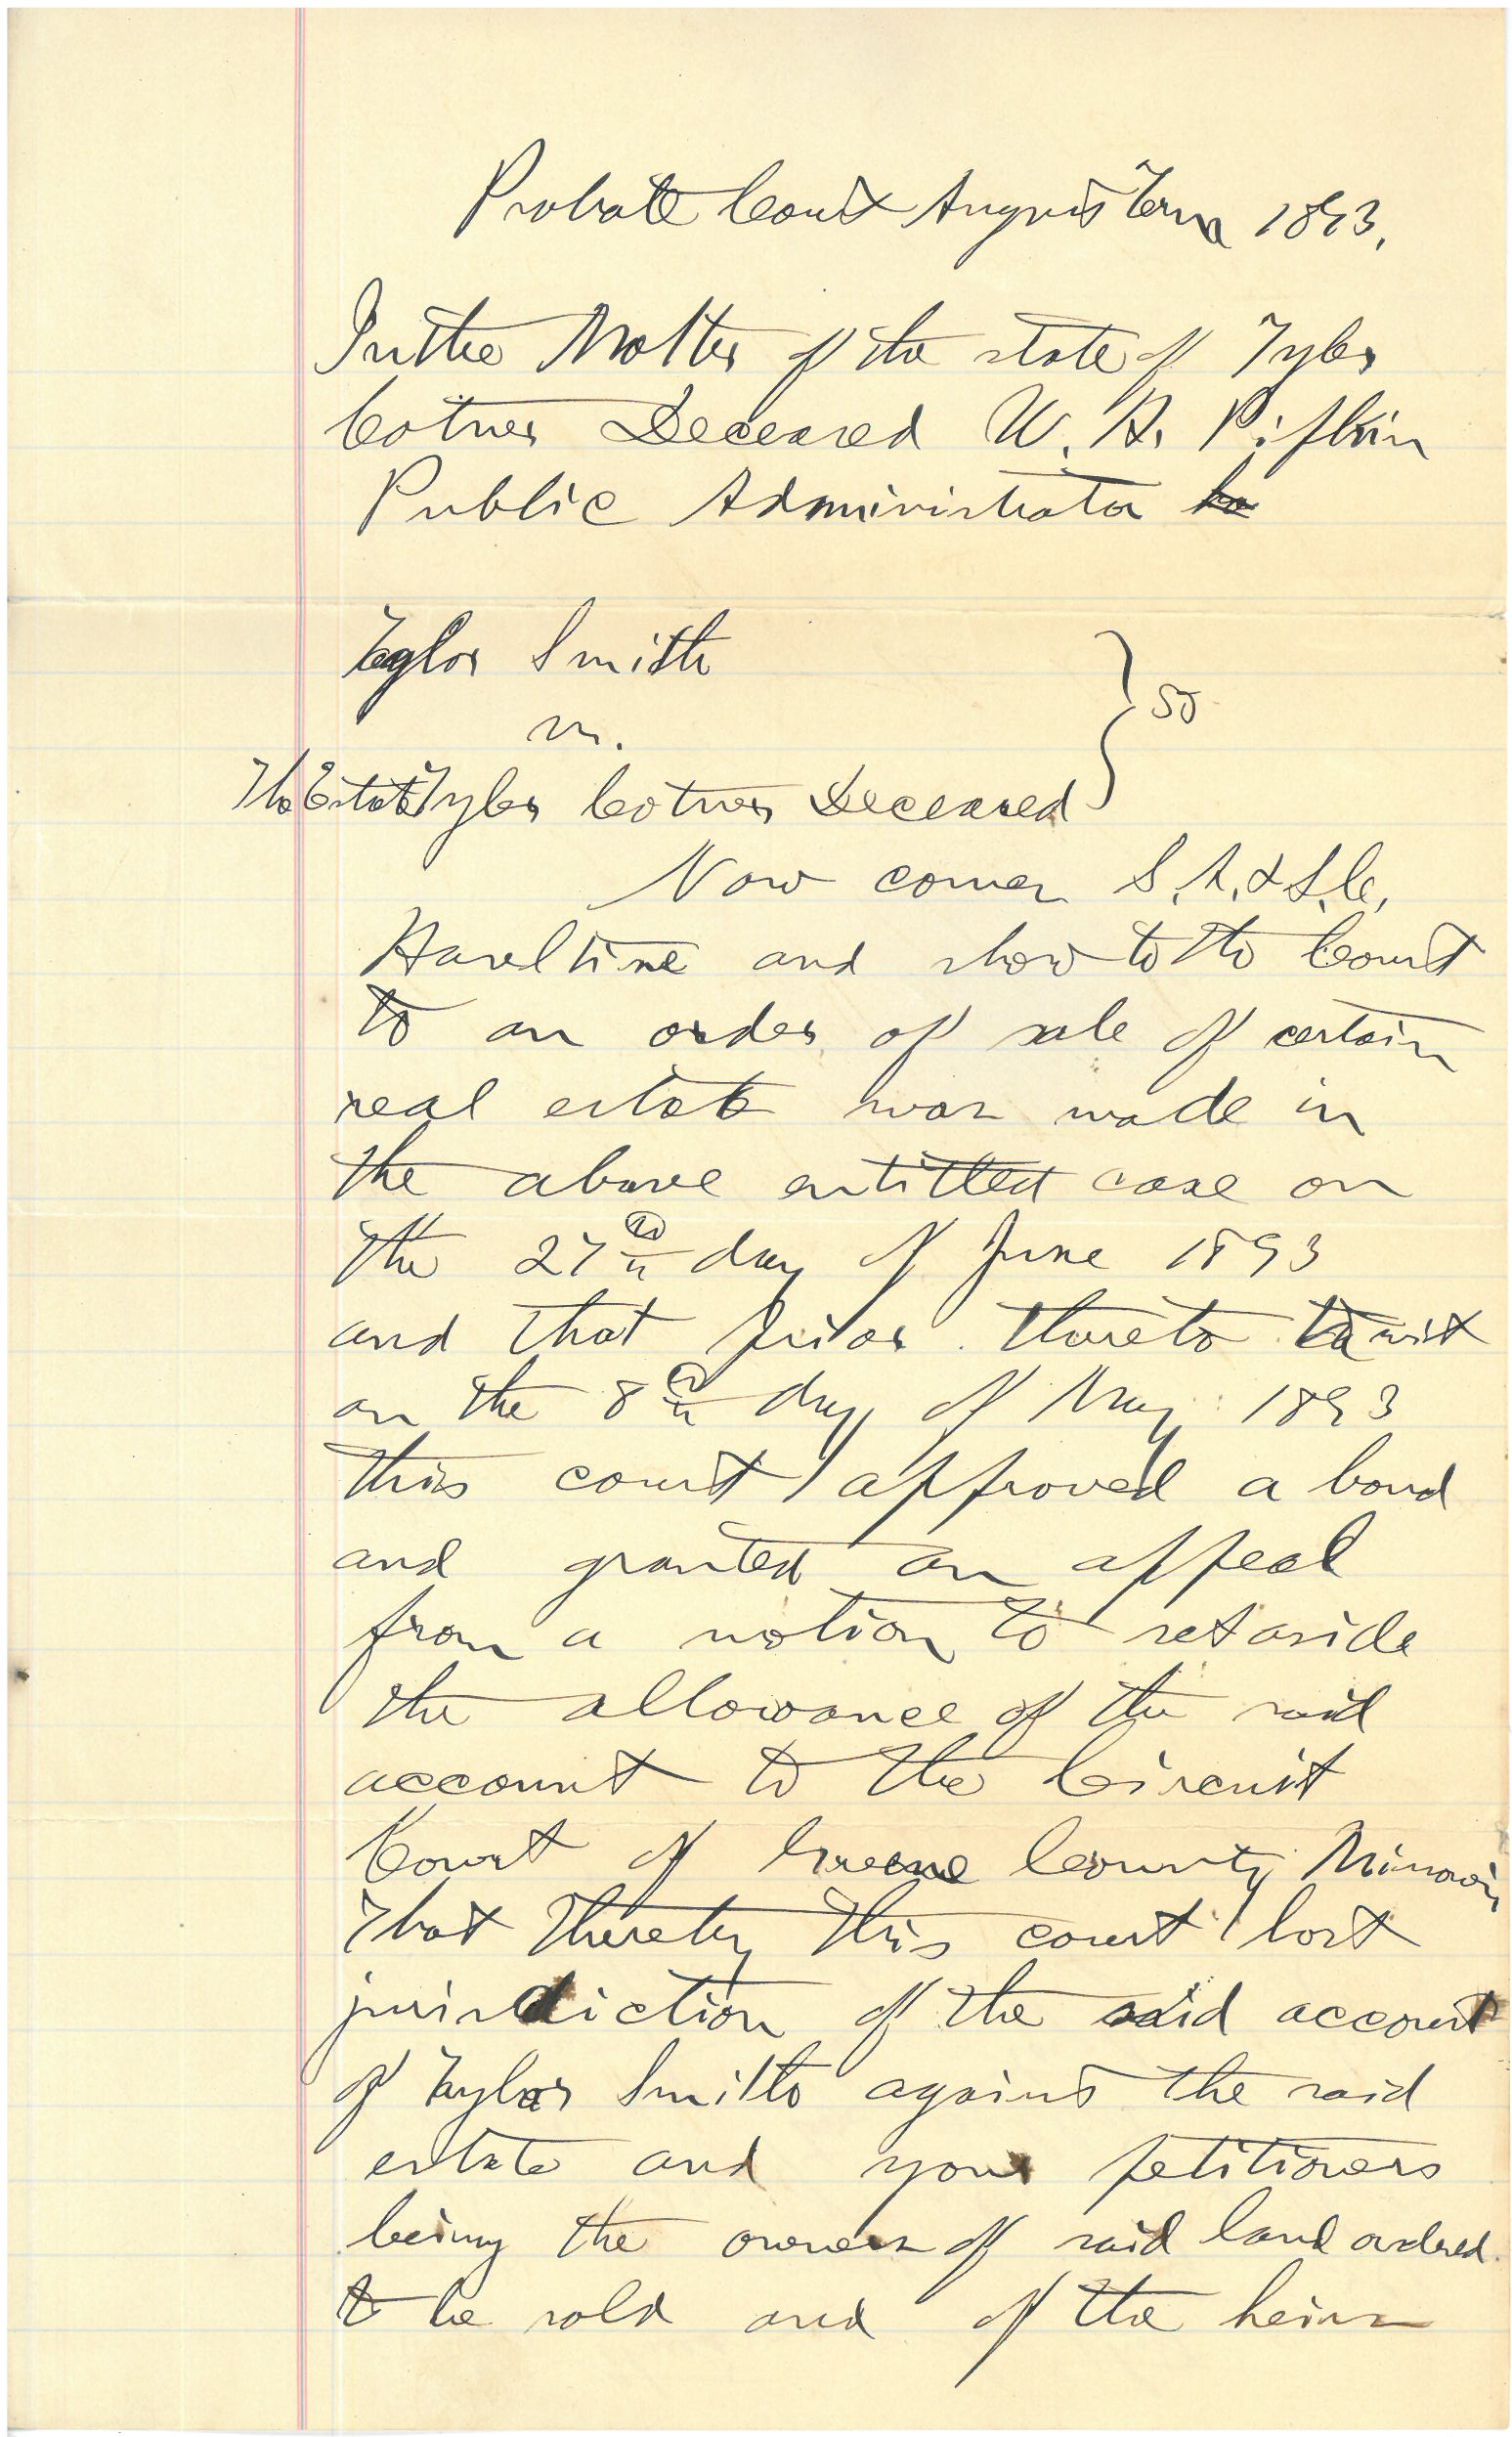 Probate Court August Term 1893.
In the Matter of the state of Tyler
Cotner Deceased W. A. Pipkin
Public Administrator
Taylor Smith
vs.
The Estate Tyler Cotner Deceased } SS
Now comes S. A. & S. C.
Haseltine and show to the Court
to an order of sale of certain
real estate was made in
the above entitled case on
the 27th day of June 1893
and that prior thereto to wit
on the 8th day of May 1893
this court approved a bond
and granted an appeal
from a motion to set aside
the allowance of the said
account to the Circuit
Court of Greene County Missouri
That thereby this court lost
jurisdiction of the said account
of Taylor Smith against the said
estate and your petitioners
being the owners of said land ordered
to be sold and of the heirs